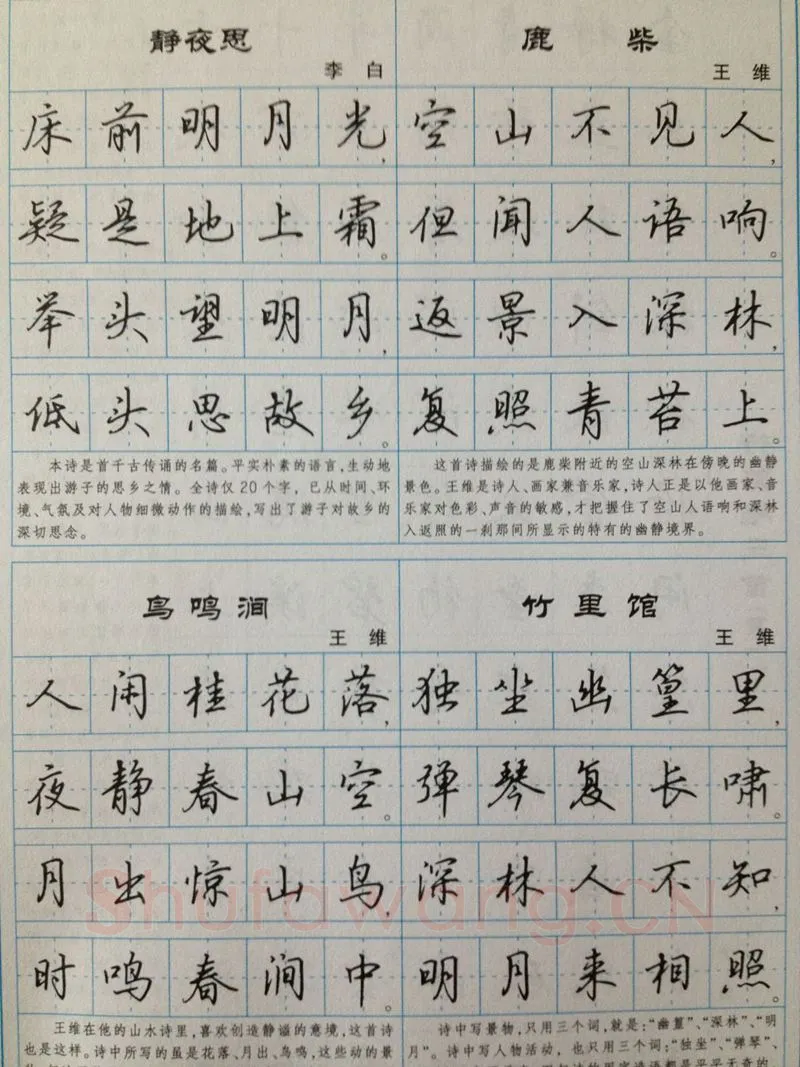 静夜思
李白
床前明月光，
疑是地上霜。
举头望明月，
低头思故乡。
本诗是首千古传诵的名篇。平实朴素的语言，生动地
表现出游子的思乡之情。全诗仅20个字，已从时间、环
境、气氛及对人物细微动作的描绘，写出了游子对故乡的
深切思念。
鹿柴
王维
空山不见人，
但闻人语响。
返景入深林，
复照青苔上。
这首诗描绘的是鹿柴附近的空山深林在傍晚的幽静
景色。王维是诗人、画家兼音乐家，诗人正是以他画家、音
乐家对色彩、声音的敏感，才把握住了空山人语响和深林
入返照的一刹那间所显示的特有的幽静境界。
鸟鸣涧
王维
人闲桂花落，
夜静春山空。
月出惊山鸟，
时鸣春涧中。
王维在他的山水诗里，喜欢创造静谧的意境，这首诗
也是这样。诗中所写的虽是花落、月出、鸟鸣，这些动的景
竹里馆
王维
独坐幽篁里，
弹琴复长啸。
深林人不知，
明月来相照。
诗中写景物，只用三个词，就是：“幽篁”、“深林”、“明
月”。诗中写人物活动，也只用三个词：“独坐”、“弹琴”、
Shufawang.CN